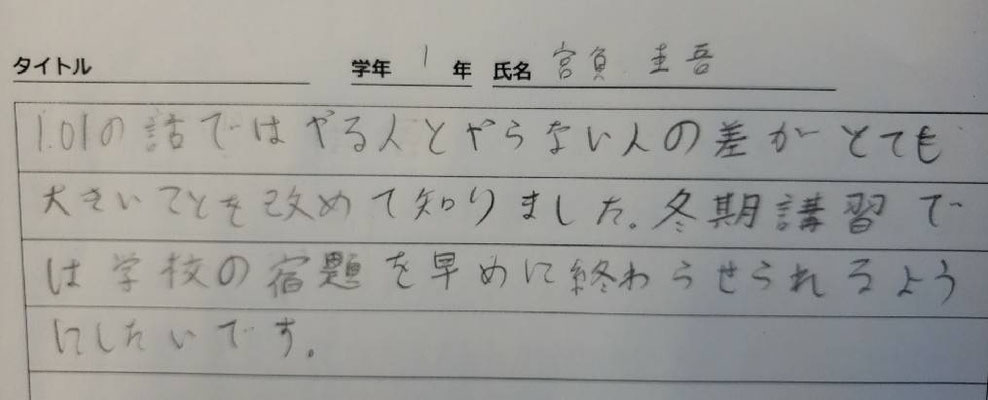 タイトル 学年 1 年 氏名 宮負 圭吾
1.01の話ではやる人とやらない人の差がとても
大きいことを改めて知りました。冬期講習で
は学校の宿題を早めに終わらせられるよう
にしたいです。